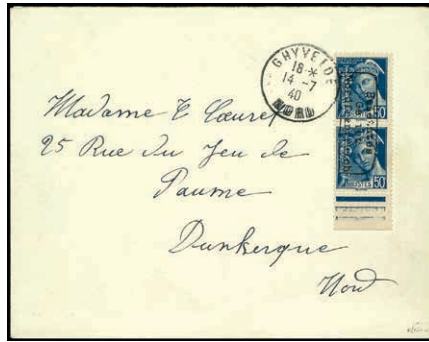 GHYVELDE
18 *
14 - 7
40
NORD
Madame E Cœuret
25 Rue du Jeu de
Paume
Dunkerque
Nord
50
50